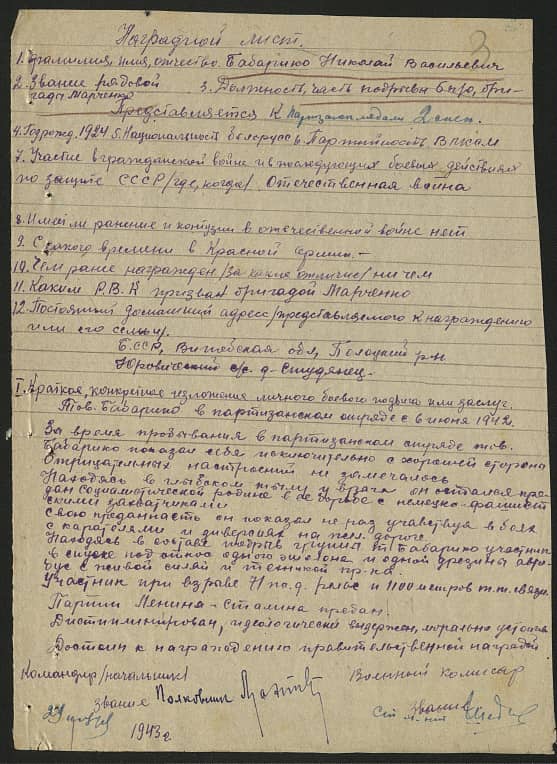 3
Наградной лист.
1. Фамилия, имя, отчество Бабарико Николай Васильевич
2. Звание рядовой 3. Должность, часть подрывн. бри-
гады Марченко
Представляется к Партизан. медали 2 степ.
4. Год рожд. 1924 5. Национальность белорусс 6. Партийность ВЛКСМ
7. Участие в гражданской войне и в последующих боевых действиях
по защите СССР /где, когда/ Отечественная война
8. Имеет ли ранение и контузии в отечественной войне нет
9. С какого времени в Красной армии. –
10. Чем ранее награжден /за какие отличия/ ни чем
11. Каким Р.В.К призван бригадой Марченко
12. Постоянный домашний адрес /представляемого к награждению
или его семьи/.
БССР, Витебская обл, Полоцкий р-н
Юровический с/с д. Студянец.
I. Краткое, конкретное изложение личного боевого подвига или заслуг.
Тов. Бабарико в партизанском отряде с 6 июня 1942.
За время пребывания в партизанском отряде тов.
Бабарико показал себя исключительно с хорошей стороны
Отрицательных настроений не замечалось
Находясь в глубоком тылу у врага он остался пре-
дан социалистической родине в её борьбе с немецко-фашист
скими захватчиками
Свою преданность он показал не раз участвуя в боях
с карателями и диверсиях на жел. дороге.
Находясь в составе подрыв группы т. Бабарико участник
в спуске под откос одного эшелона и одной дрезины
с живой силой и техникой пр-ка.
Участник при взрыве 71 по.д. рельс и 1100 метров т.т. связи
Партии Ленина – Сталина предан.
Дисциплинирован, идеологически выдержен, морально устойчив
Достоин к награждению правительственной наградой
Командир /начальник/ Военный комисар
звание Полковник звание
1943 г